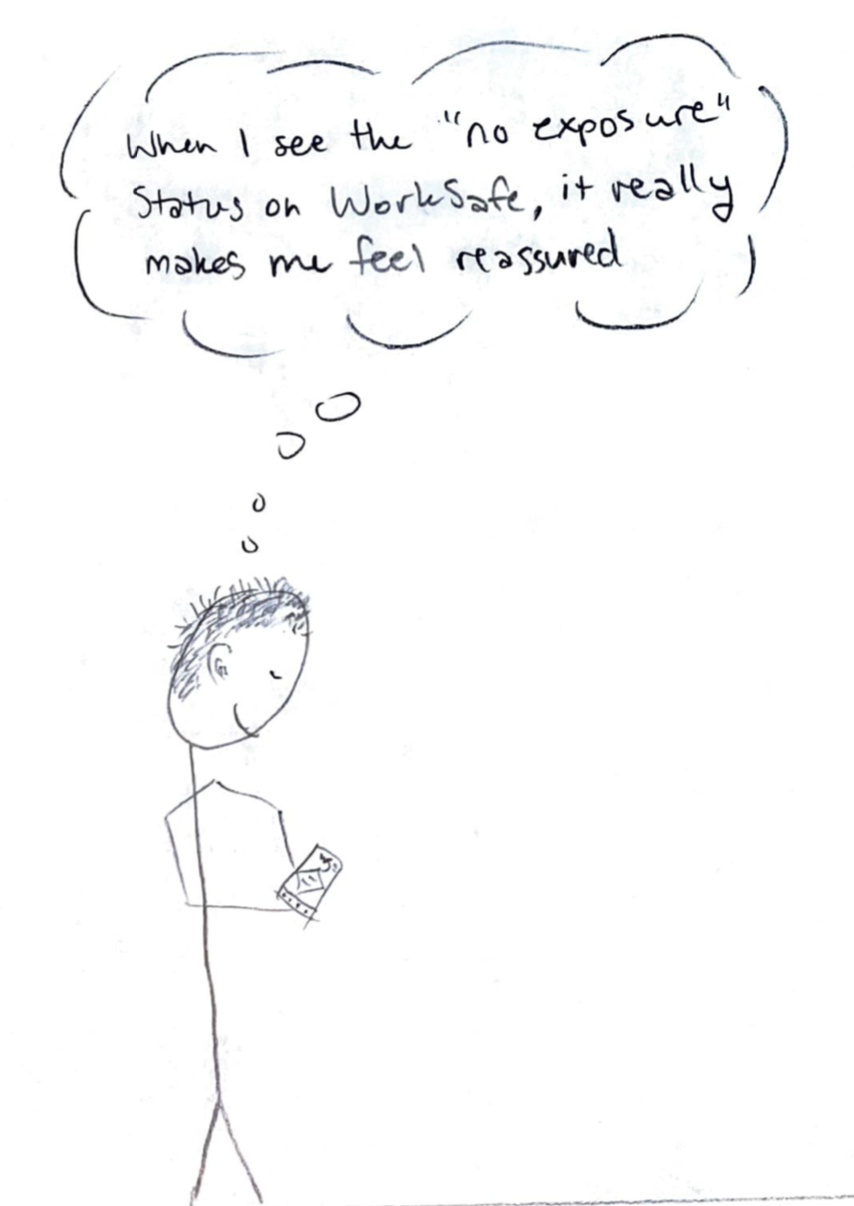 When I see the "no exposure"
Status on WorkSafe, it really
makes me feel reassured